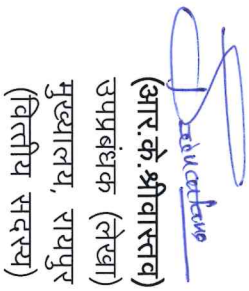 (आर.के.श्रीवास्तव)
उपप्रबंधक (लेखा)
मुख्यालय, रायपुर
(वित्तीय सदस्य)